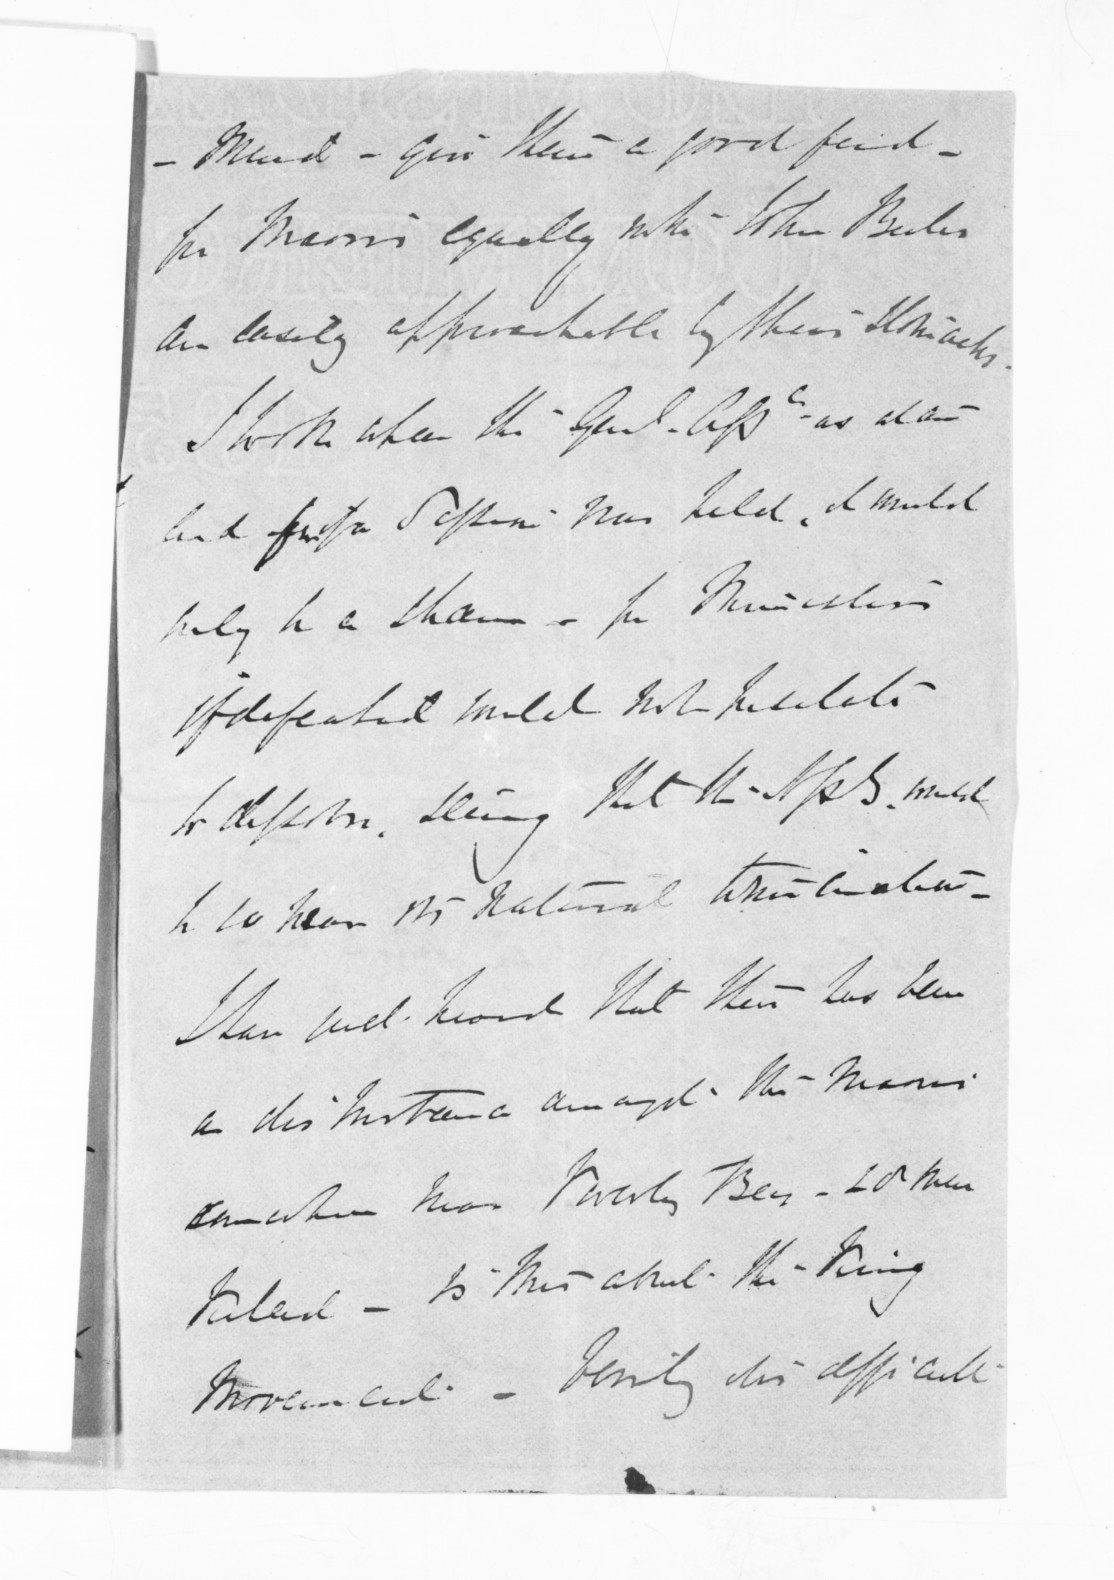 - ment - give them a good feed -
for Maoris equally with John Bulls
are easily approachable by their stomachs.
I when the Genl. Assy. as it an
and Session was held, it would
only be a sham - for Ministers
if defeated would not hesitate
to dissolve, seeing that the Assy. would
be so near its natural termination -
I have just heard that there has been
a disturbance amongst the Maoris
somewhere near Poverty Bay - 20 men
killed - Is this about the King
Movement - Verily it is difficult